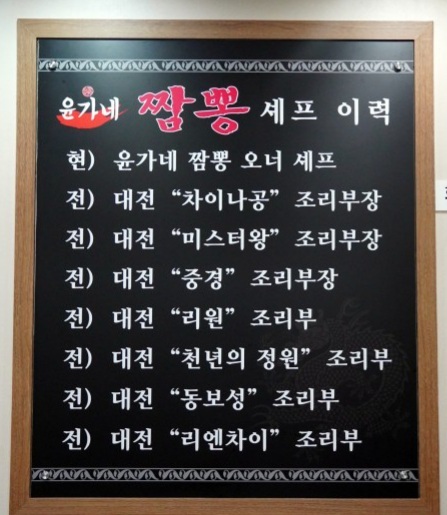 윤가네 짬뽕 셰프 이력
현) 윤가네 짬뽕 오너 셰프
전) 대전 “차이나공” 조리부장
전) 대전 “미스터왕” 조리부장
전) 대전 “중경” 조리부장
전) 대전 “리원” 조리부
전) 대전 “천년의 정원” 조리부
전) 대전 “동보성” 조리부
전) 대전 “리엔차이” 조리부